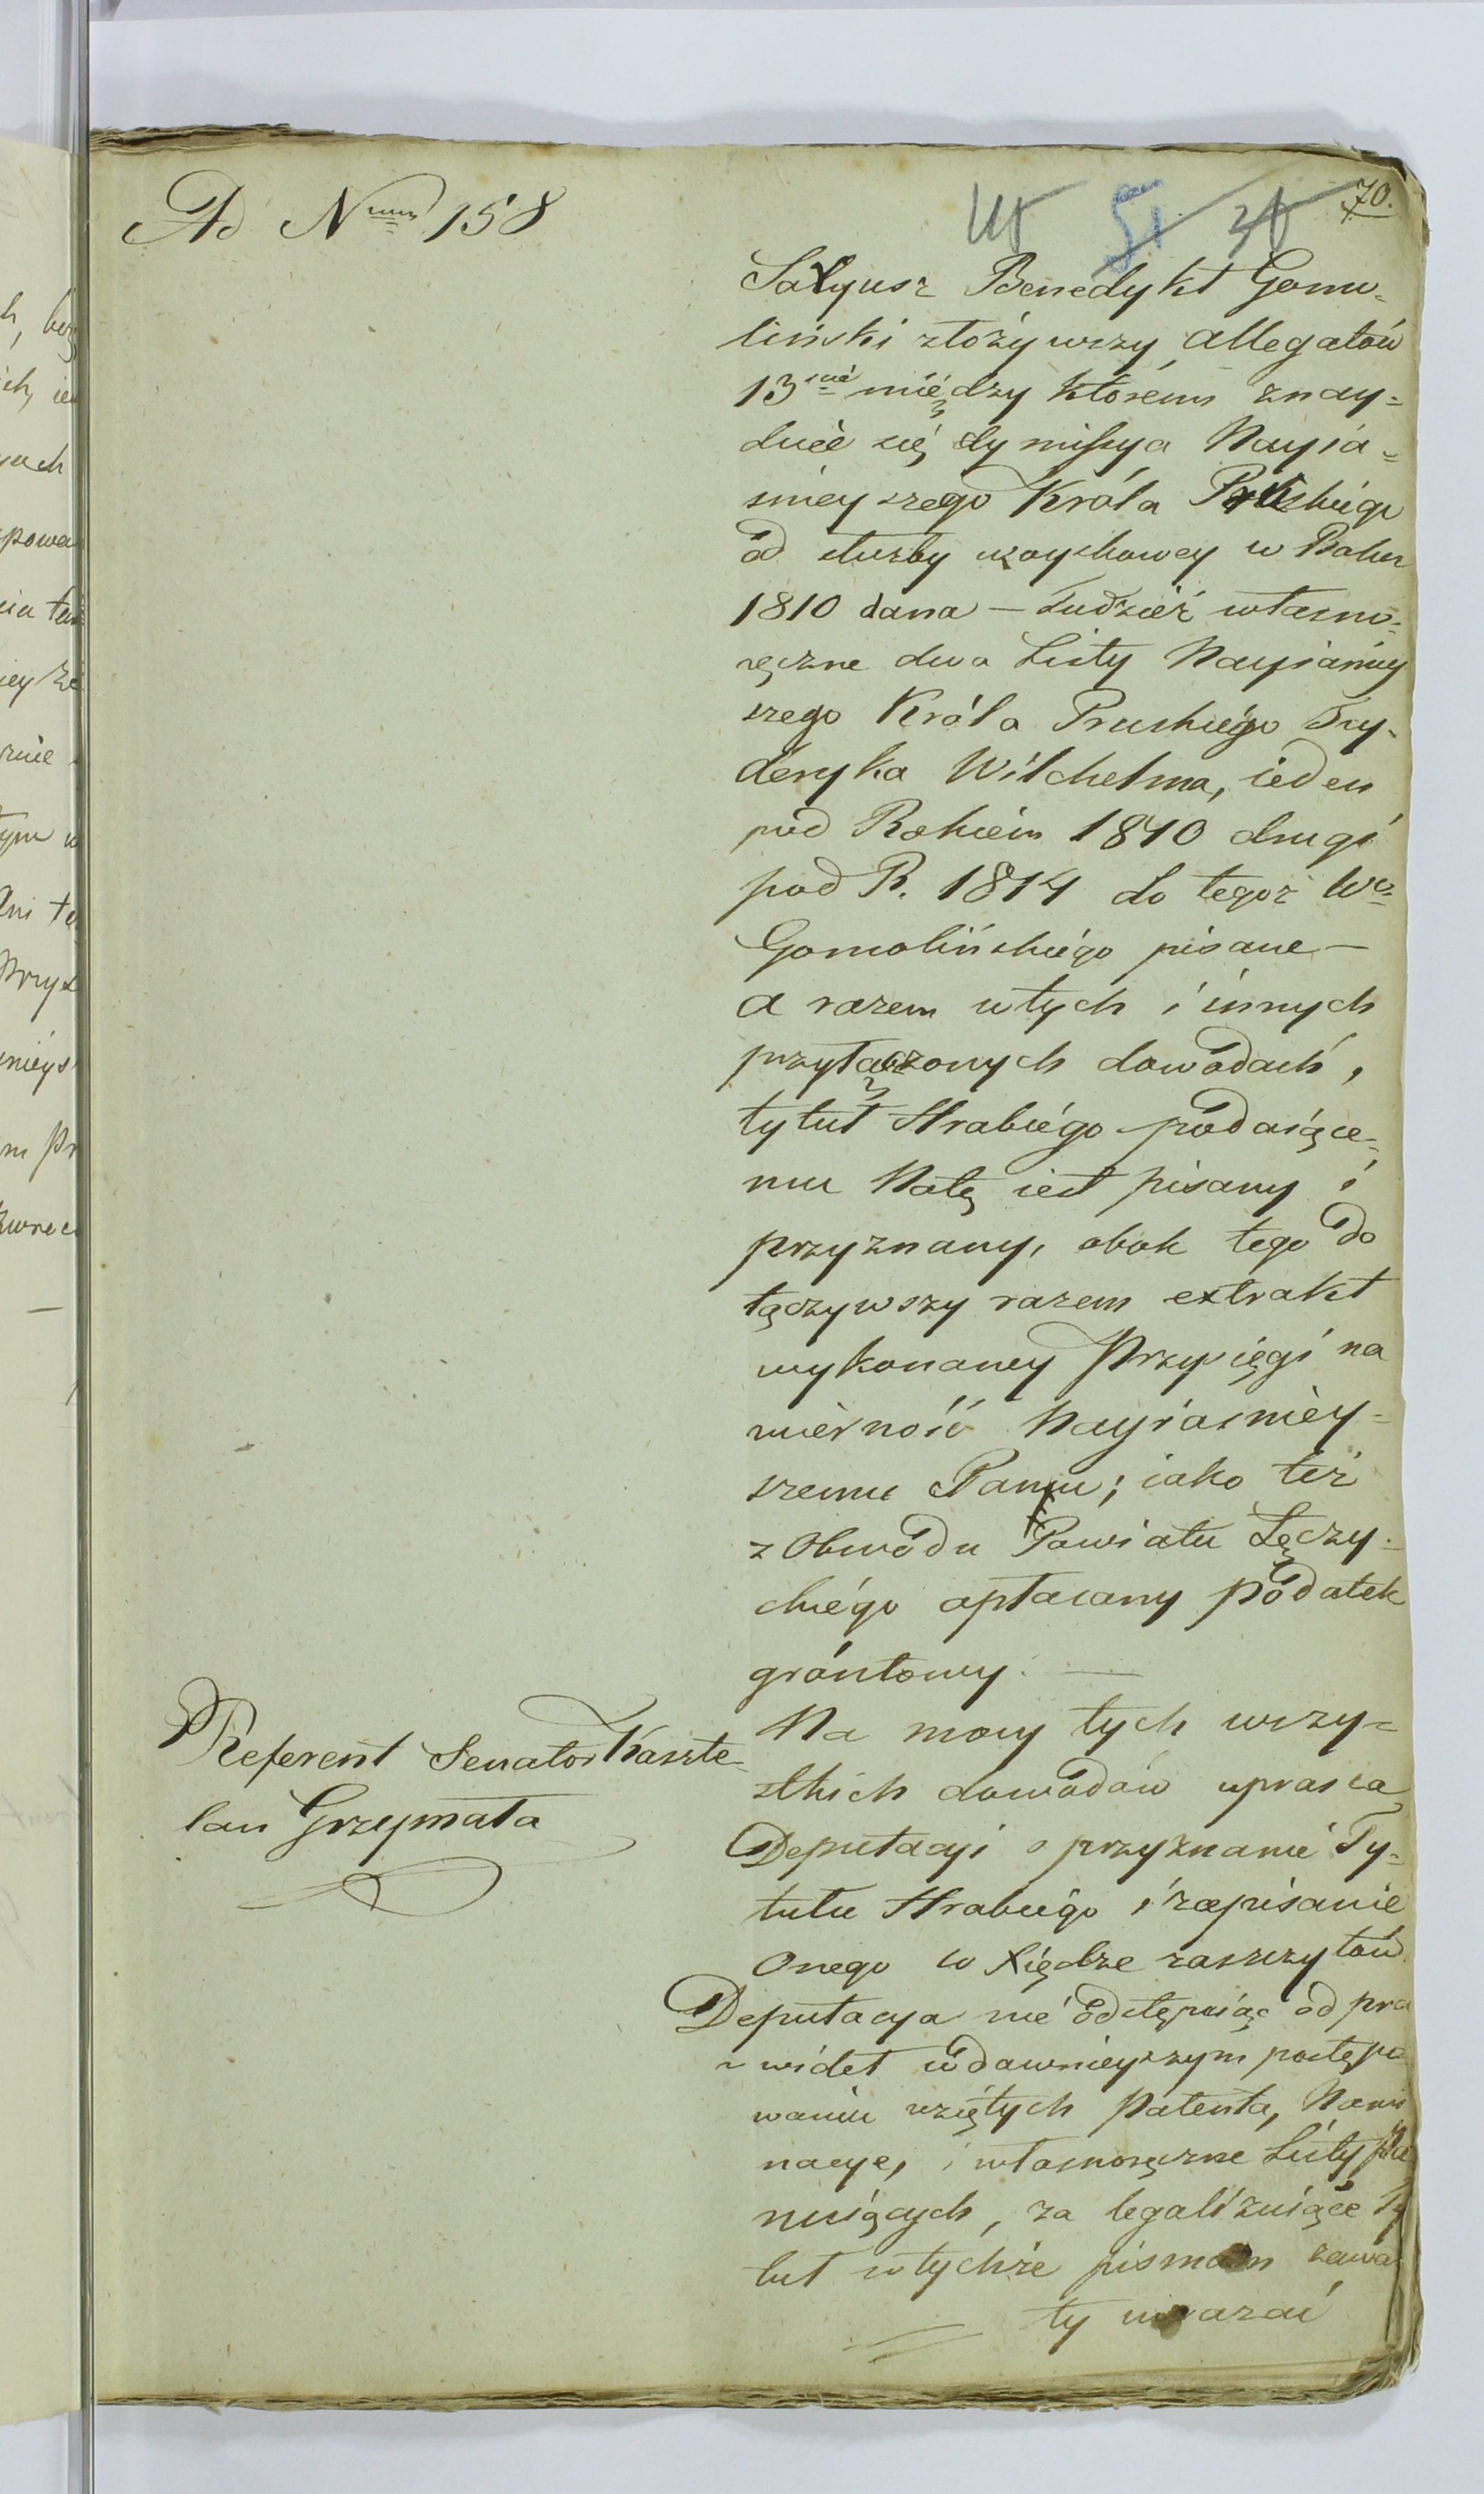 Ad N<sup>rum</sup> 158
70.
Salyusz Benedykt Gomo-
liński złożywszy allegatów
13<sup>ście</sup> między któremi znay=
duie się dymissya Nayia=
śnieyszego Króla Pruskiégo
od służby woyskowey w Roku
1810 dana — tudzież własno=
ręczne dwa Listy Nayiaśniey
szego Króla Pruskiégo Fry-
deryka Wilchelma, ieden
pod Rokiem 1810 drugi
pod R. 1814 do tegoż W<sup>go</sup>
Gomolińskiégo pisane —
a razem w tych i innych
przyłączonych dowodach,
tytuł Hrabiégo podaiące-
mu Notę iest pisany i
przyznany, obok tego do
łączywszy razem extrakt
wykonaney Przysięgi na
wierność Nayiaśniéy=
szemu Panu; iako téż
z Obwodu Powiatu Łęczy-
ckiégo opłacany podatek
gróntowy. —
Na mocy tych wszy=
stkich dowodów uprasza
Deputacyi o przyznanie Ty=
tułu Hrabiégo i zapisanie
Onego w Xiędze zaszczytów.
Deputacya nie odstępuiąc od pra
widеł w dawnieyszym postępo
waniu wziętych Patenta, Nomi
nacye, i własnoręczne Listy Pa
nuiących, za legalizuiące Ty
tuł w tychże pismom zawar
ty uważać
Referent Senator Kaszte-
lan Grzymała